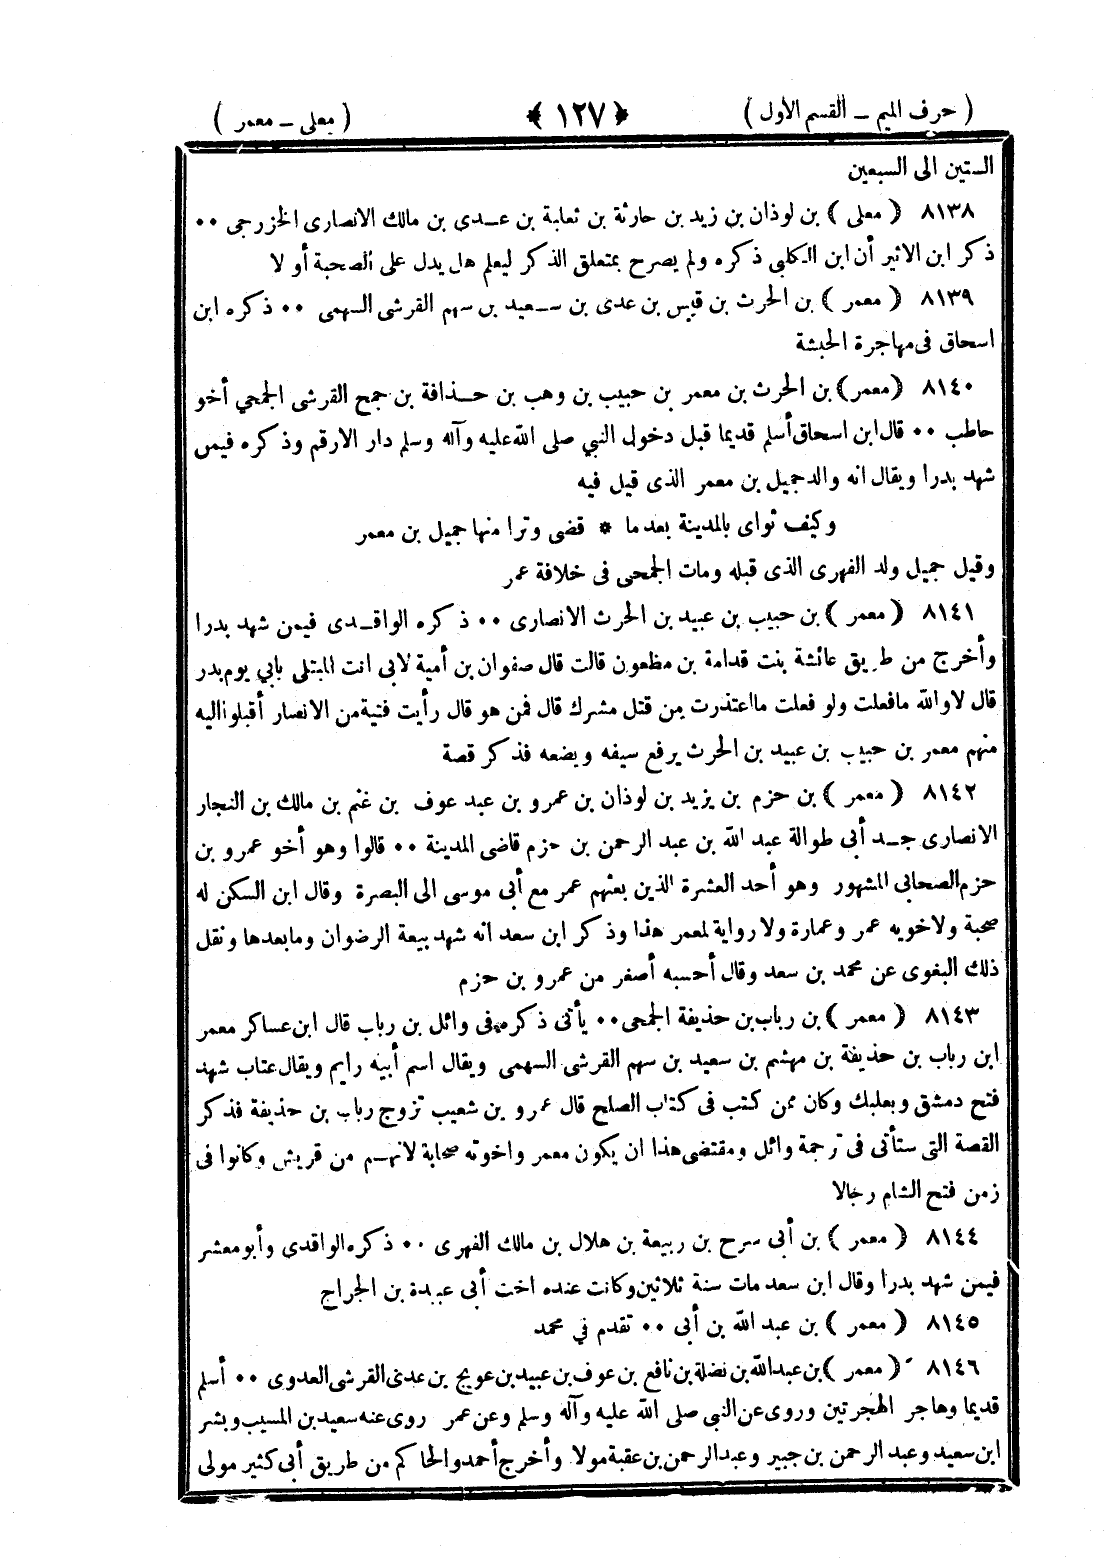 ( حرف الميم ــ القسم الأول )
﴿ ١٢٧ ﴾
( معلى ــ معمر )
الستين الى السبعين
٨١٣٨ ( معلى ) بن لوذان بن زيد بن حارثة بن ثعلبة بن عـدى بن مالك الانصارى الخزرجى ٠٠
ذكر ابن الاثير أن ابن الكلبى ذكره ولم يصرح بمتعلق الذكر ليعلم هل يدل على الصحبة أو لا
٨١٣٩ ( معمر ) بن الحرث بن قيس بن عدى بن سـعيد بن سهم القرشى السهمى ٠٠ ذكره ابن
اسحاق فى مهاجرة الحبشة
٨١٤٠ (معمر) بن الحرث بن معمر بن حبيب بن وهب بن حـذافة بن جمح القرشى الجمحي أخو
حاطب ٠٠ قال ابن اسحاق أسلم قديما قبل دخول النبي صلى الله عليه وآله وسلم دار الارقم وذكره فيمن
شهد بدرا ويقال انه والد جميل بن معمر الذى قيل فيه
وكيف ثواى بالمدينة بعد ما * قضى وترا منها جميل بن معمر
وقيل جميل ولد الفهرى الذى قبله ومات الجمحى فى خلافة عمر
٨١٤١ ( معمر ) بن حبيب بن عبيد بن الحرث الانصارى ٠٠ ذكره الواقـدى فيمن شهد بدرا
وأخرج من طريق عائشة بنت قدامة بن مظعون قالت قال صفوان بن أمية لابى انت المبتلى بابي يوم بدر
قال لا والله ما فعلت ولو فعلت ما اعتذرت من قتل مشرك قال فمن هو قال رأيت فتية من الانصار أقبلوا اليه
منهم معمر بن حبيب بن عبيد بن الحرث يرفع سيفه ويضعه فذكر قصة
٨١٤٢ ( معمر ) بن حزم بن يزيد بن لوذان بن عمرو بن عبد عوف بن غنم بن مالك بن النجار
الانصارى جـد أبى طوالة عبد الله بن عبد الرحمن بن حزم قاضى المدينة ٠٠ قالوا وهو أخو عمرو بن
حزم الصحابى المشهور وهو أحد العشرة الذين بعثهم عمر مع أبى موسى الى البصرة وقال ابن السكن له
صحبة ولاخويه عمر وعمارة ولا رواية لمعمر هذا وذكر ابن سعد انه شهد بيعة الرضوان وما بعدها ونقل
ذلك البغوى عن محمد بن سعد وقال أحسبه أصغر من عمرو بن حزم
٨١٤٣ ( معمر ) بن رباب بن حذيفة الجمحى ٠٠ يأتى ذكره فى وائل بن رباب قال ابن عساكر معمر
ابن رباب بن حذيفة بن مهشم بن سعيد بن سهم القرشى السهمى ويقال اسم أبيه رايم ويقال عتاب شهد
فتح دمشق وبعلبك وكان ممن كتب فى كتاب الصلح قال عمرو بن شعيب تزوج رباب بن حذيفة فذكر
القصة التى ستأتى فى ترجمة وائل ومقتضى هذا ان يكون معمر واخوته صحابة لانهـم من قريش وكانوا فى
زمن فتح الشام رجالا
٨١٤٤ ( معمر ) بن أبى سرح بن ربيعة بن هلال بن مالك الفهرى ٠٠ ذكره الواقدى وأبو معشر
فيمن شهد بدرا وقال ابن سعد مات سنة ثلاثين وكانت عنده اخت أبى عبيدة بن الجراح
٨١٤٥ ( معمر ) بن عبد الله بن أبى ٠٠ تقدم في محمد
٨١٤٦ ( معمر ) بن عبد الله بن نضلة بن نافع بن عوف بن عبيد بن عويج بن عدى القرشى العدوى ٠٠ أسلم
قديما وهاجر الهجرتين وروى عن النبي صلى الله عليه وآله وسلم وعن عمر روى عنه سعيد بن المسيب وبشر
ابن سعيد وعبد الرحمن بن جبير وعبد الرحمن بن عقبة مولا وأخرج أحمد والحاكم من طريق أبى كثير مولى